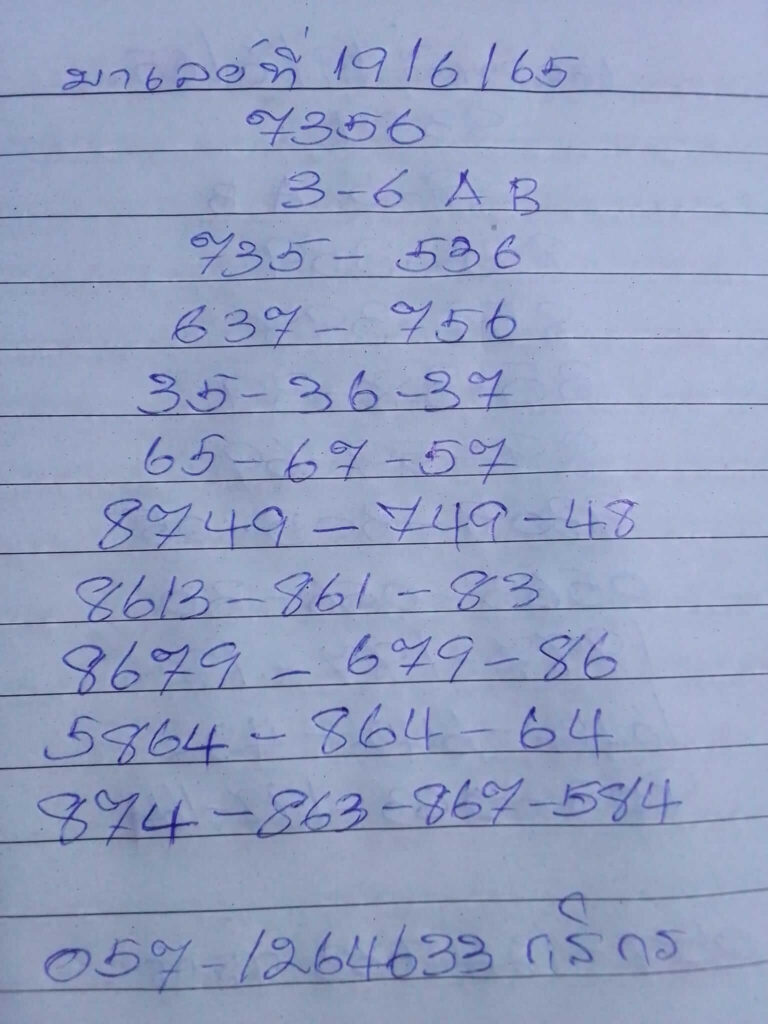 มาเลย์ที่ 19/6/65
7356
3-6 A B
735 - 536
637 - 756
35 - 36 - 37
65 - 67 - 57
8749 - 749 - 48
8613 - 861 - 83
8679 - 679 - 86
5864 - 864 - 64
874 - 863 - 867 - 584
057-1264633 กสิกร